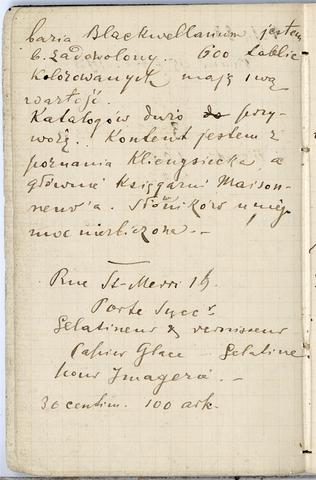 baria Blackwellanum jestem
b. zadowolony. 600 tablic
kolorowanych mają swą
wartość.
Katalogów dużo przy-
wożę. Kontent jestem z
poznania Klienzsiecka, a
głównie Księgarni Maison-
neuv'a. Słowników u niej
moc niezliczona –
Rue St-Merri 19.
Porte Succr.
Gelatineur & vernisseur
Papier Glacé – Gelatine
pour Imagerie. –
30 centim. 100 ark.